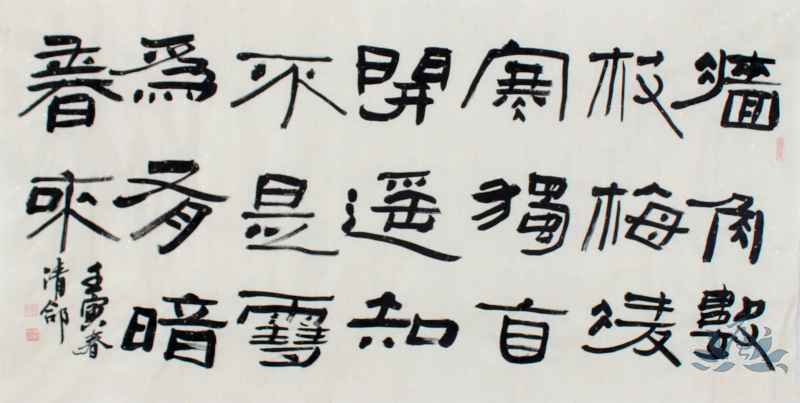 牆角數
枝梅凌
寒獨自
開遥知
不是雪
為有暗
香来
壬寅春
清